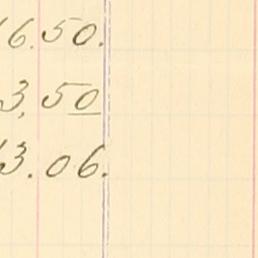 16.50.
3,50
13.06.